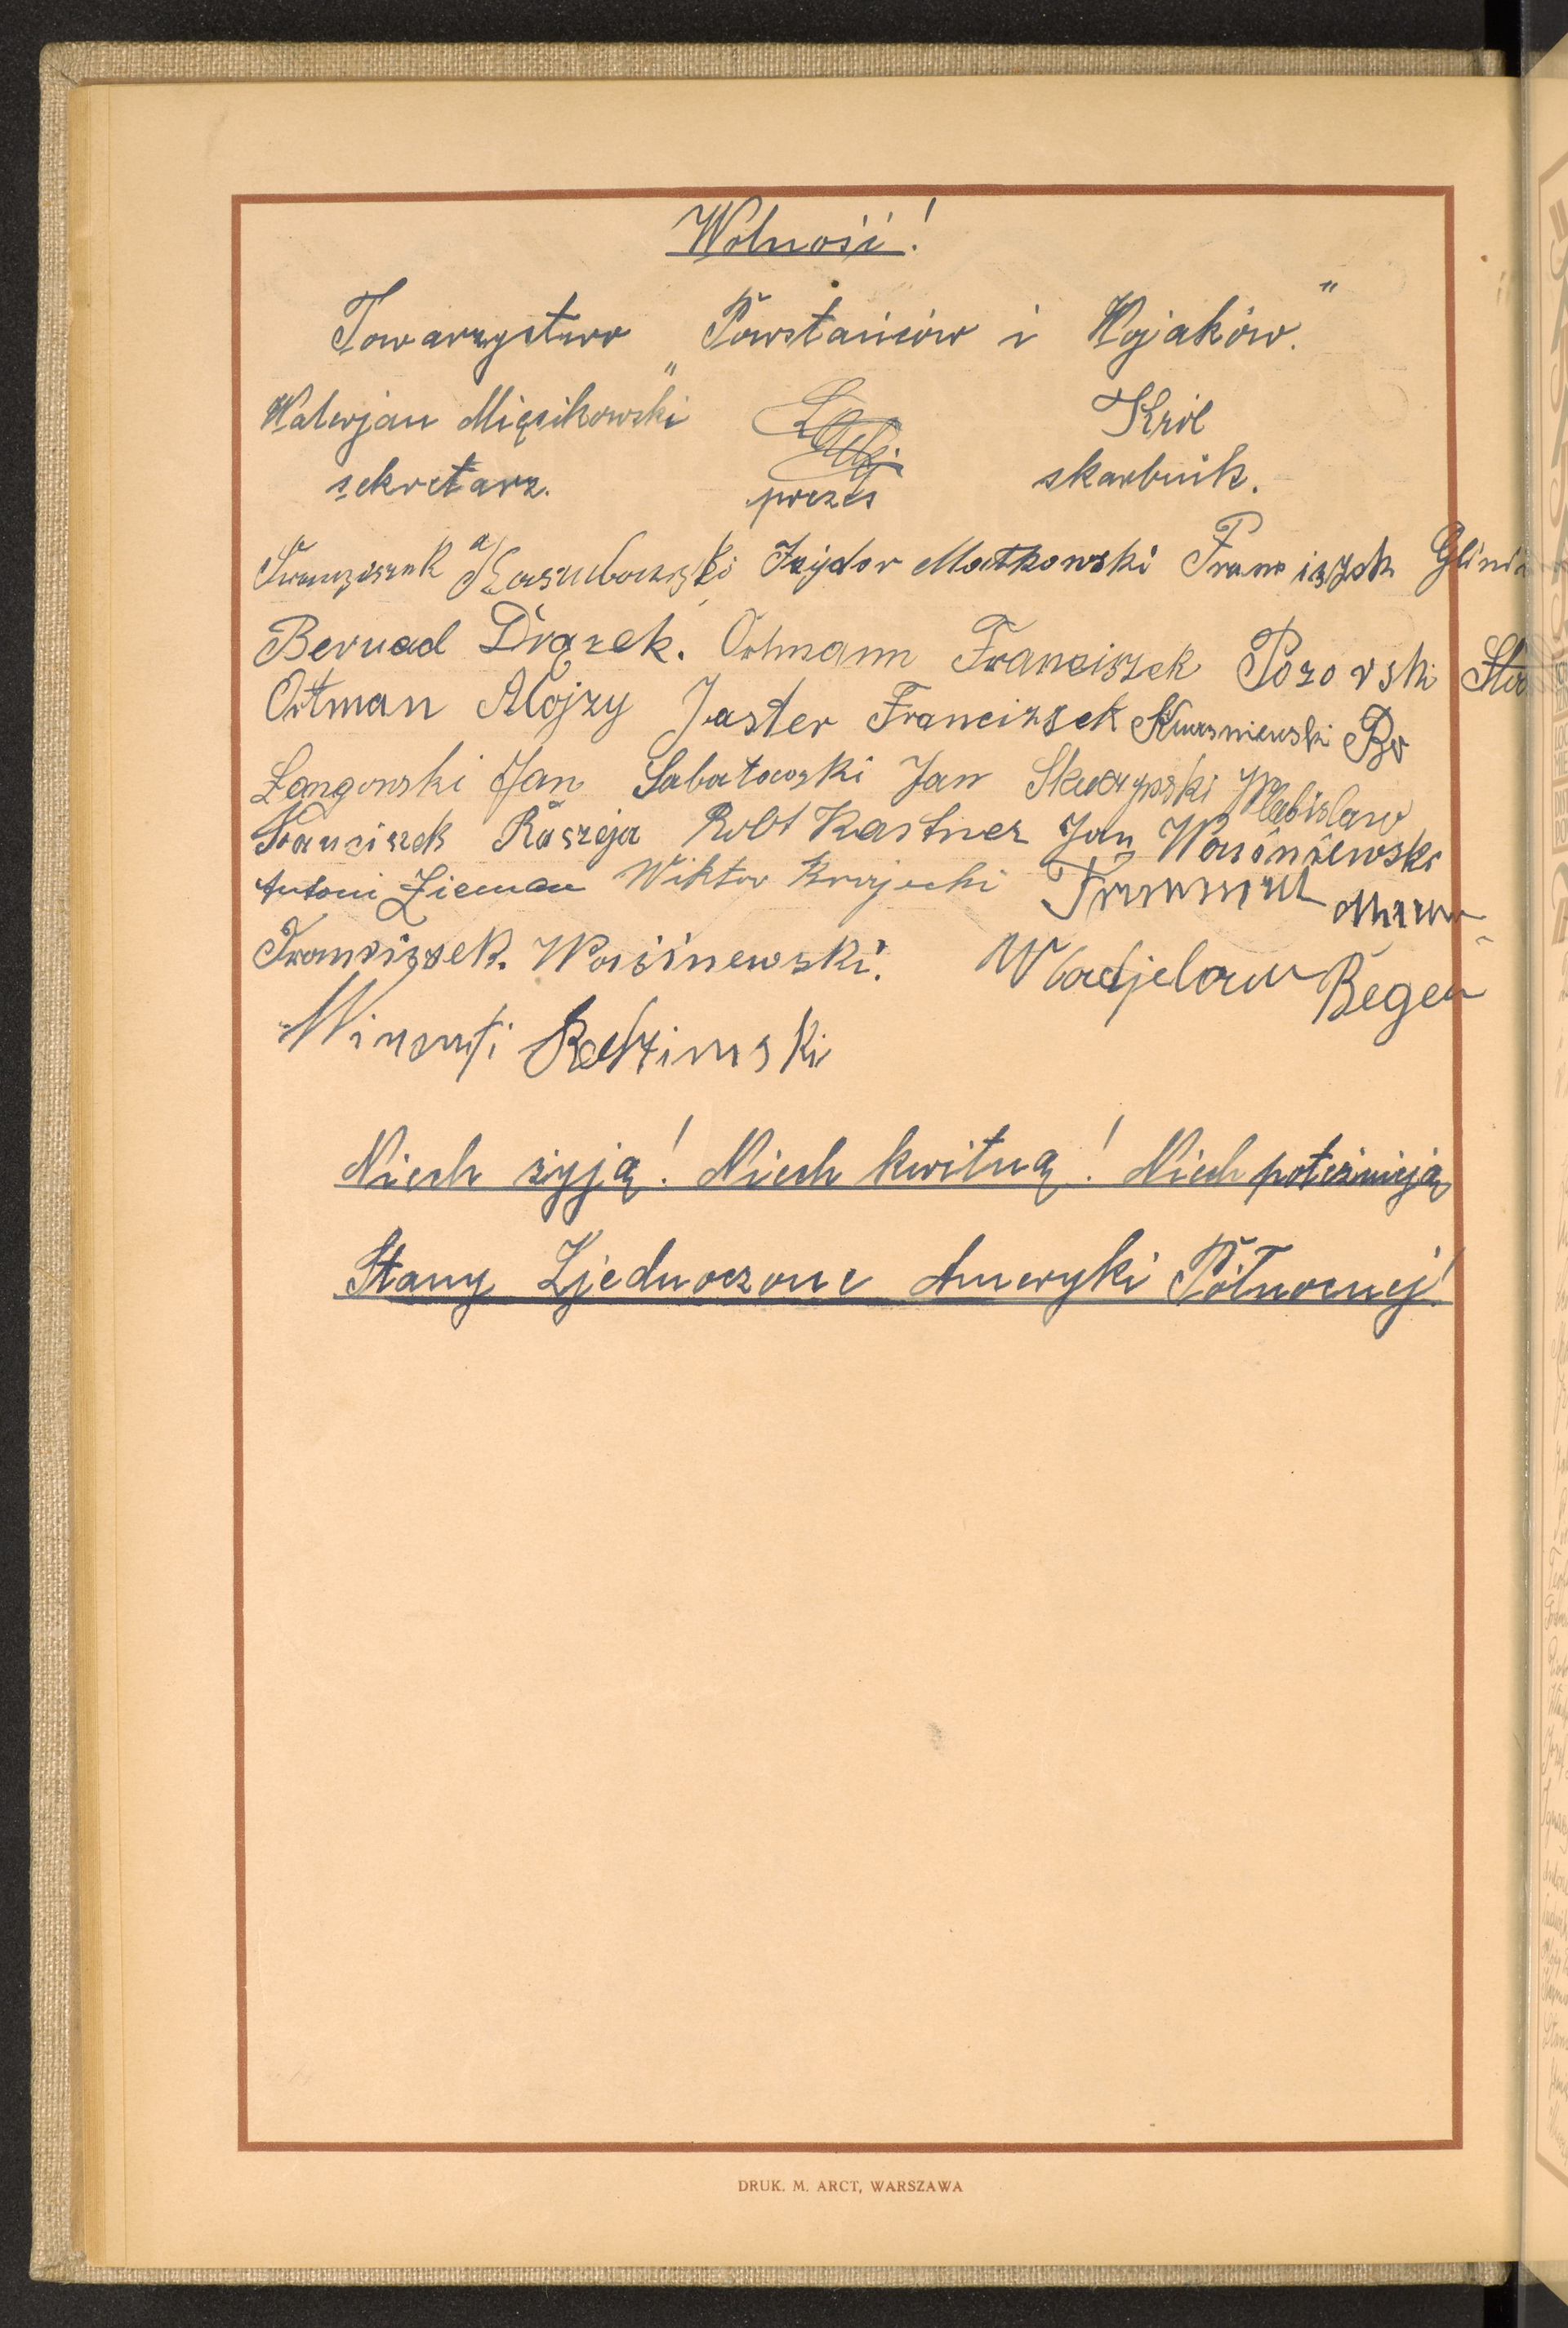 Wolność!
Towarzystwo „Powstańców i Wojaków."
Walerjan Mięsikowski Król
sekretarz. prezes skarbnik.
Franziszek Kaszubowski Izydor Matkowski Franciszek
Bernad Drązek. Ortmann Franciszek Pozorski
Ortman Alojzy Jaster Franciszek
Langowski Jan Sabatowski Jan Skwarpski Wladislaw
Franciszek Raszeja Robt Kastner Jan Wasśniewski
Antoni Zieman Wiktor Krajecki
Franciszek. Waiśnewski. Wladjelaw Begen
Radzimski
Niech żyją! Niech kwitną! Niech potężnieją
Stany Zjednoczone Ameryki Północnej!
DRUK. M. ARCT, WARSZAWA